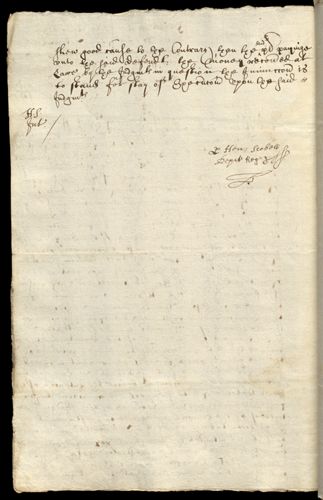 shew good cause to the Contrary then the pl payinge
unto the said defend.t the money recoved at
Lawe by the Judgm.t in question the Injunccon is
to stand for stay of Execucon upon the said
Judgm.t
Hen: Scobell
Depu.t Reg